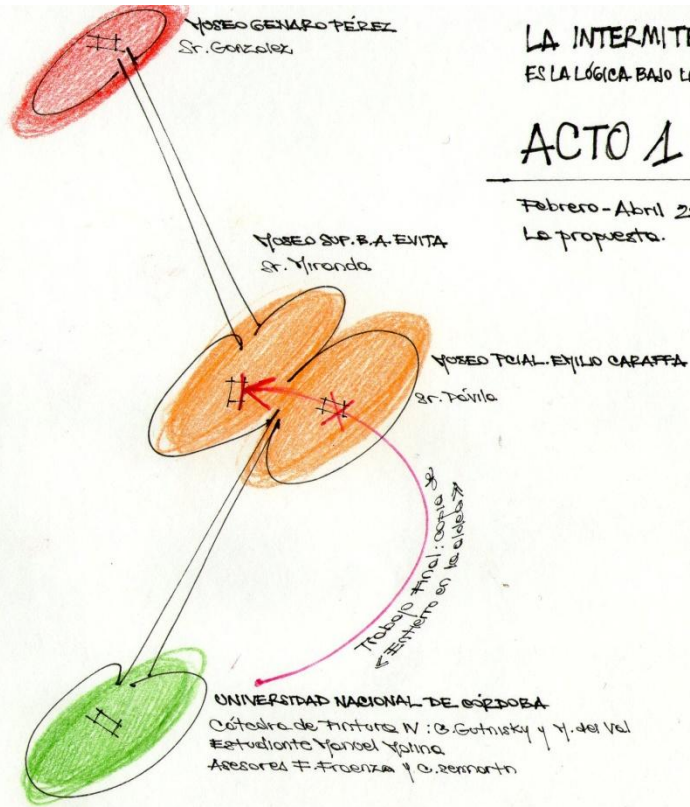 MUSEO GENARO PÉREZ
Sr. Gonzalez
LA INTERMITE
ES LA LÓGICA BAJO LA
ACTO 1
Febrero-Abril 2
La propuesta.
MUSEO SUP. B.A. EVITA
Sr. Miranda
MUSEO PCIAL. EMILIO CARAFFA
Sr. Dávila
Trabajo Final: Copia de
"Entierro en la aldea"
UNIVERSIDAD NACIONAL DE CÓRDOBA
Cátedra de Pintura IV: C. Gutnisky y M. del Val
Estudiante Manuel Molina
Asesores F. Fraenza y C.